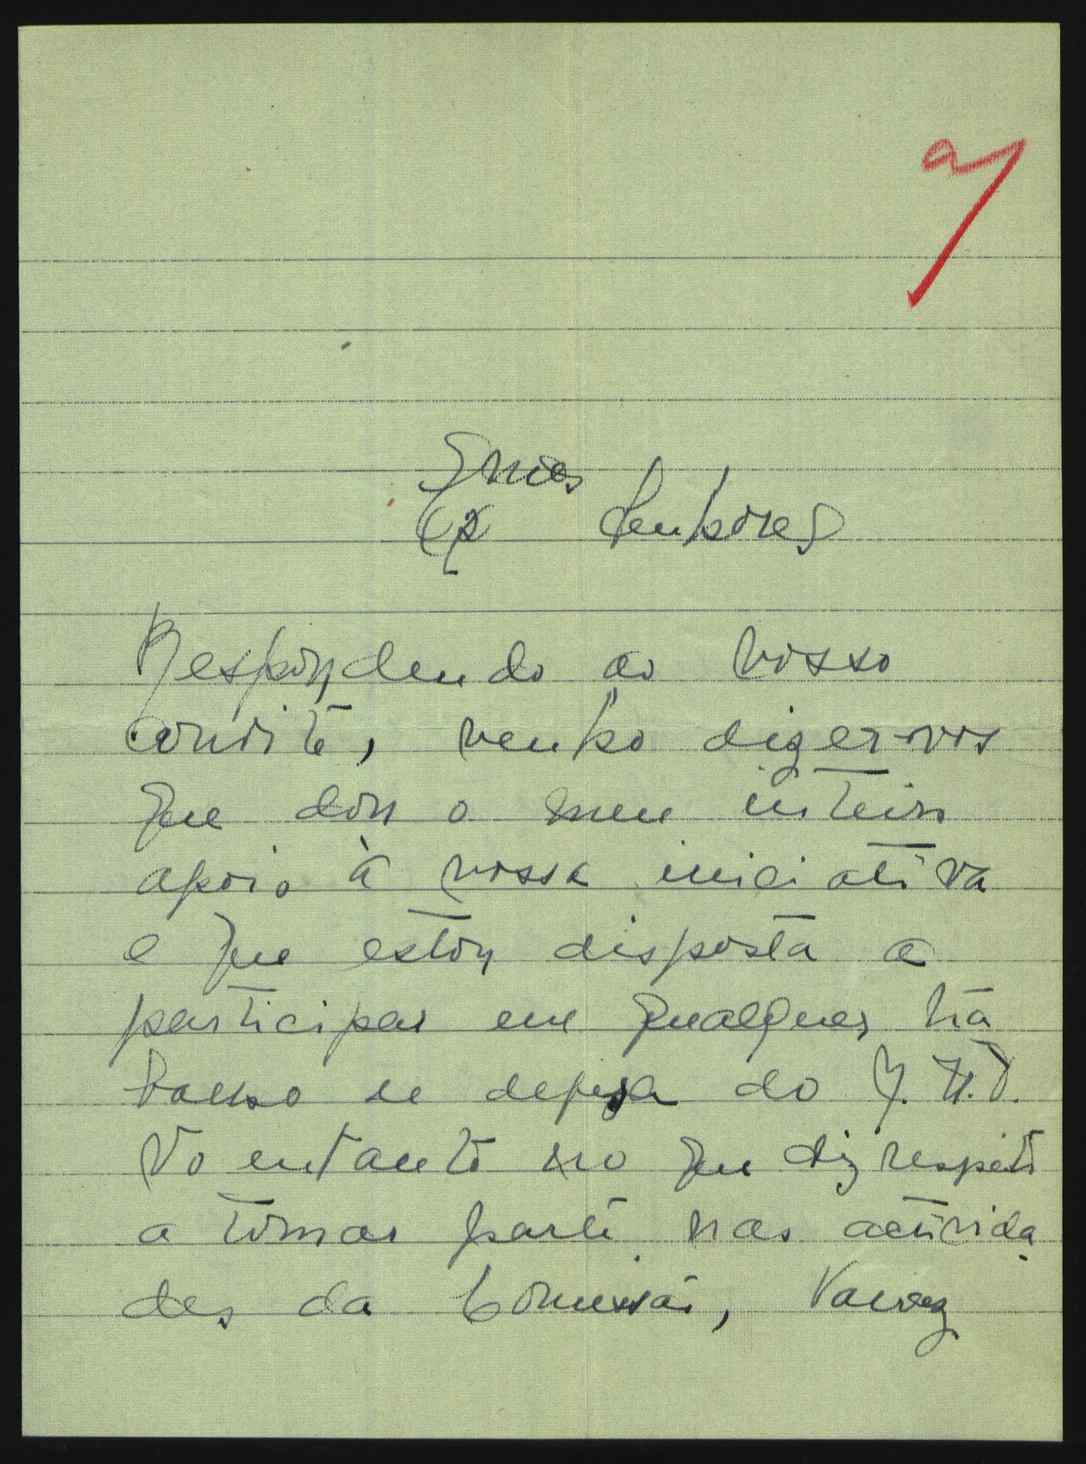 Ex.mos Senhores
Respondendo ao vosso
convite, venho dizer-vos
que dou o meu inteiro
apoio à vossa iniciativa
e que estou disposta a
participar em qualquer tra
balho de defesa do
No entanto no que diz respeito
a tomar parte nas activida
des da Comissão,